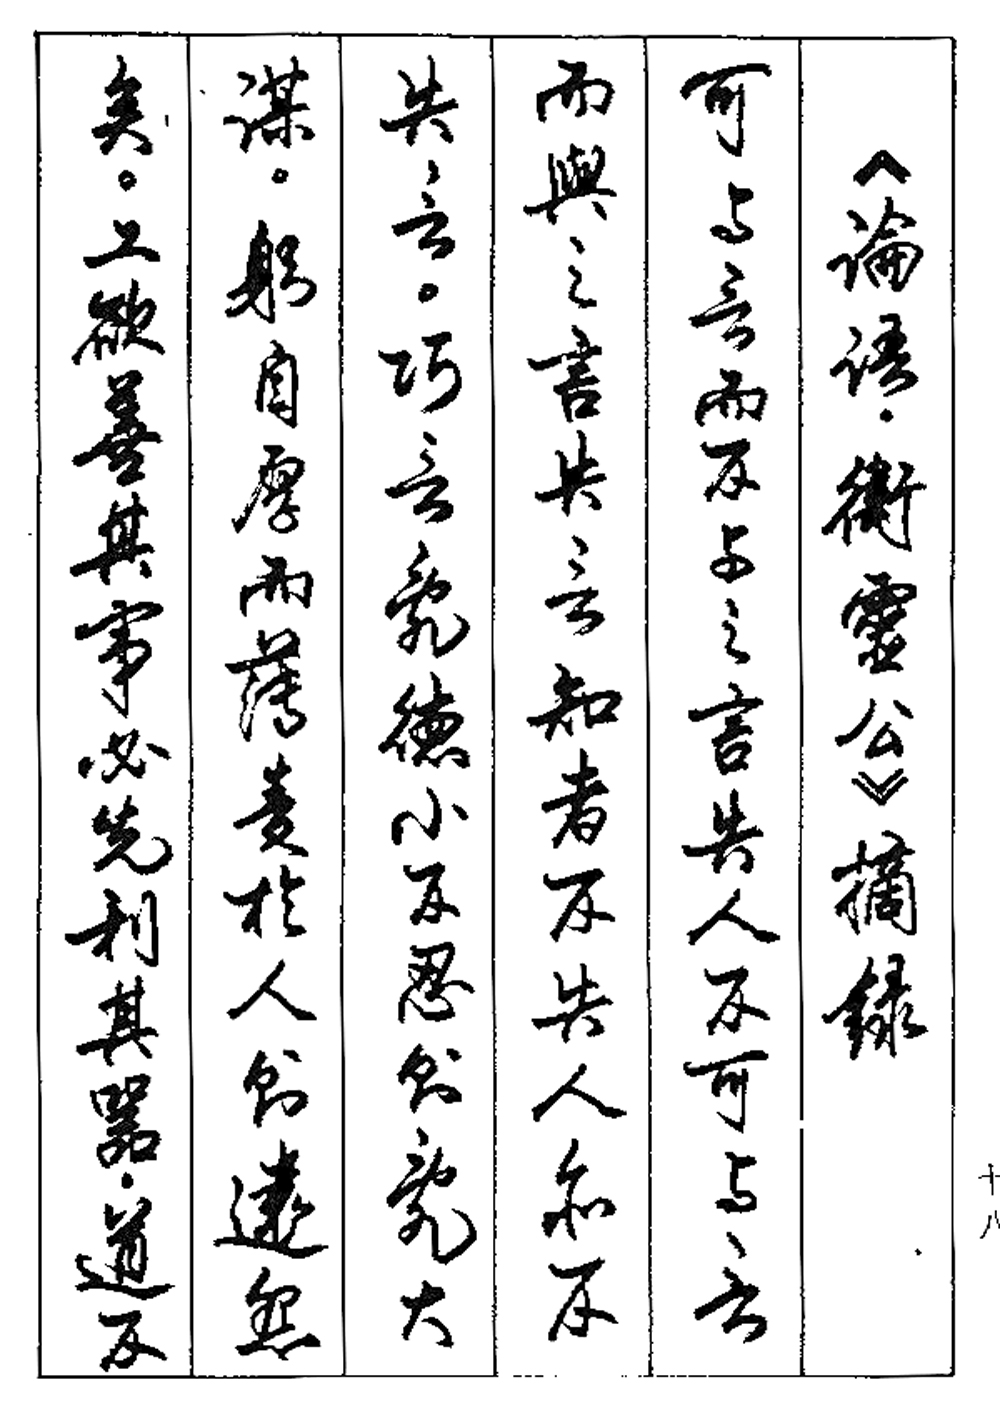 《論語·衛靈公》摘録
可与言而不与之言失人不可与言
而與之言失言知者不失人亦不
失言。巧言亂德小不忍則亂大
謀。躬自厚而薄責於人則遠怨
矣。工欲善其事必先利其器·道不
十八